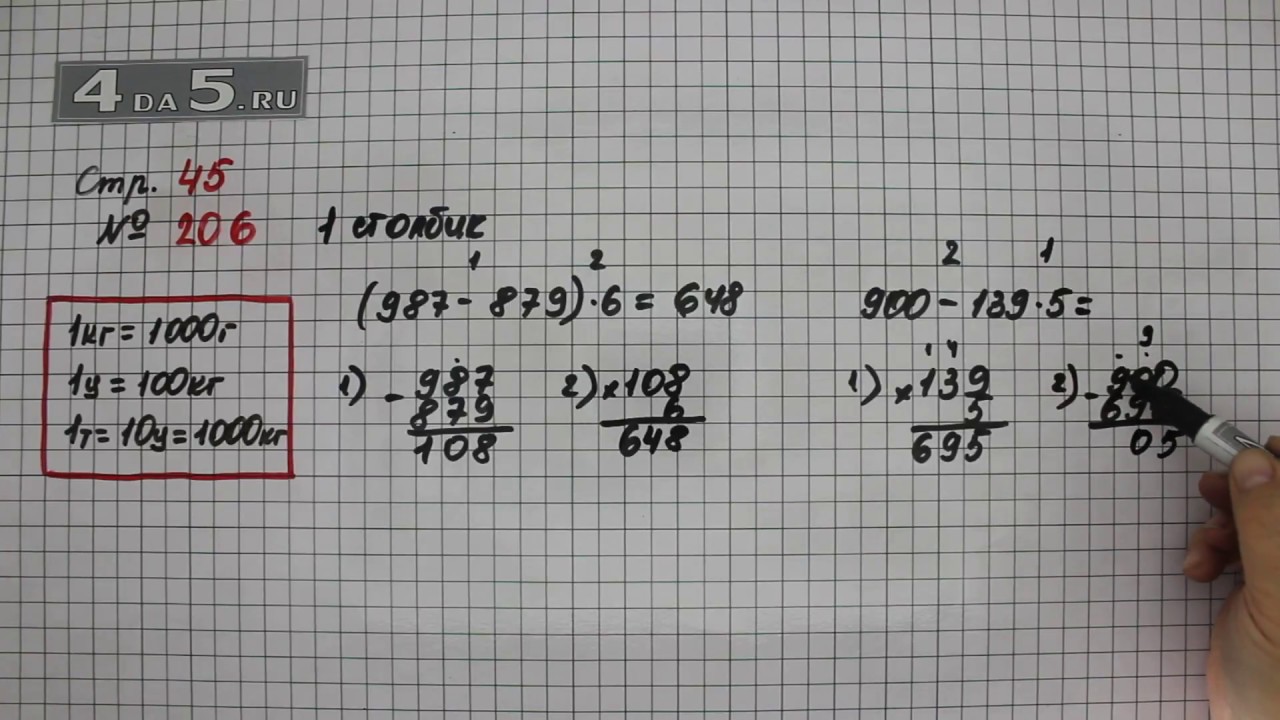 4 DA 5.RU
Стр. 45
№ 206 1 столбик
1кг = 1000г
1ц = 100кг
1т = 10ц = 1000кг
1 2
(987 - 879) · 6 = 648
1) - 987
879
108
2) × 108
6
648
2 1
900 - 139 · 5 =
1 4
1) × 139
5
695
9
2) - 900
69
05